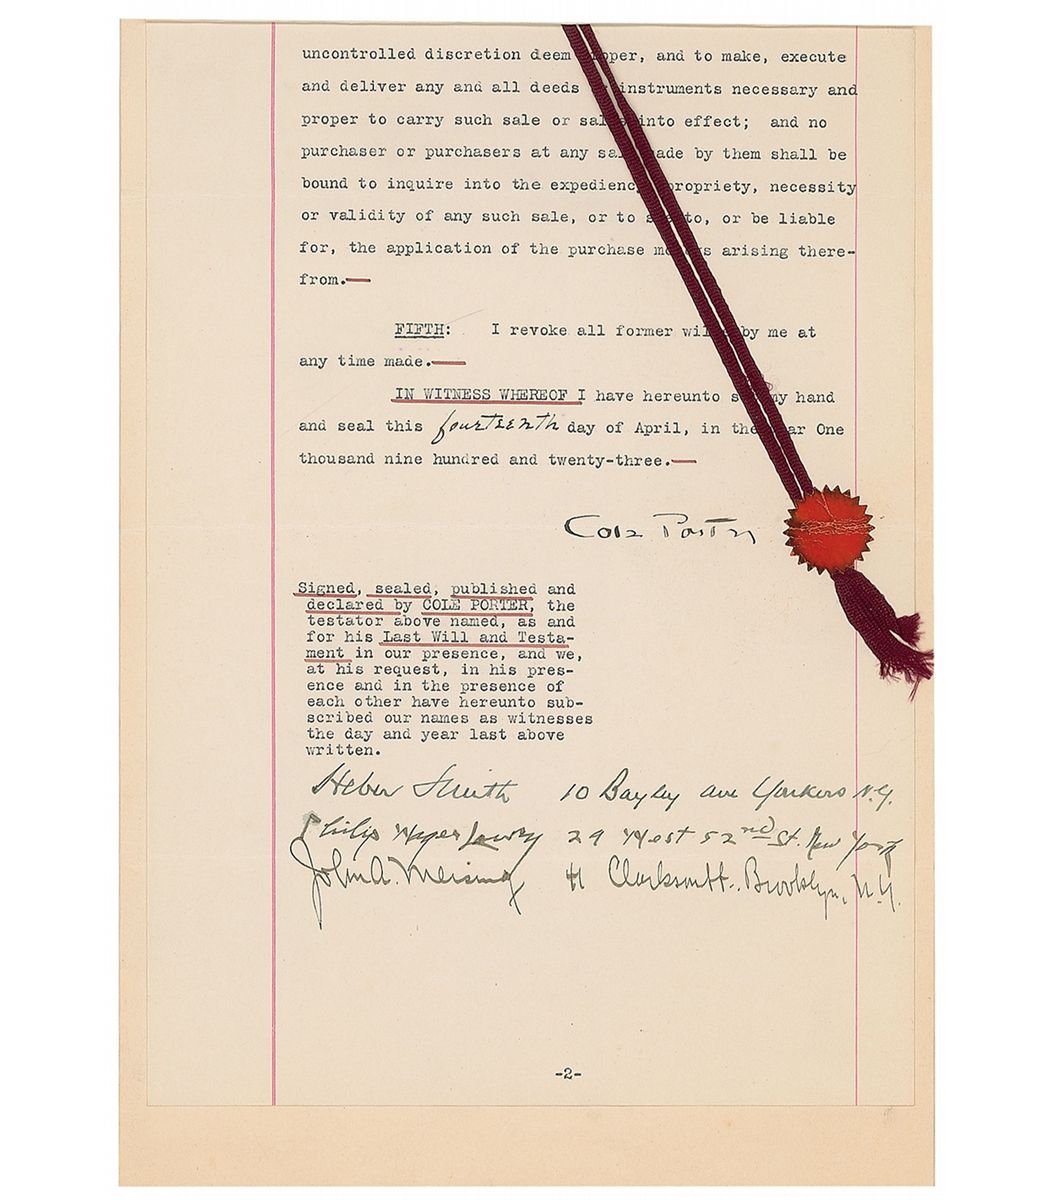 uncontrolled discretion deem proper, and to make, execute
and deliver any and all deeds or instruments necessary and
proper to carry such sale or sales into effect; and no
purchaser or purchasers at any sale made by them shall be
bound to inquire into the expediency, propriety, necessity
or validity of any such sale, or to see to, or be liable
for, the application of the purchase moneys arising there-
from.—
FIFTH: I revoke all former wills by me at
any time made.—
IN WITNESS WHEREOF I have hereunto set my hand
and seal this fourteenth day of April, in the year One
thousand nine hundred and twenty-three.—
Cole Porter
Signed, sealed, published and
declared by COLE PORTER, the
testator above named, as and
for his Last Will and Testa-
ment in our presence, and we,
at his request, in his pres-
ence and in the presence of
each other have hereunto sub-
scribed our names as witnesses
the day and year last above
written.
Heber Smith 10 Bayley ave Yonkers N.Y.
Philip Lowry 29 West 52nd St. New York
John A. Clarkson St., Brooklyn, N.Y.
-2-